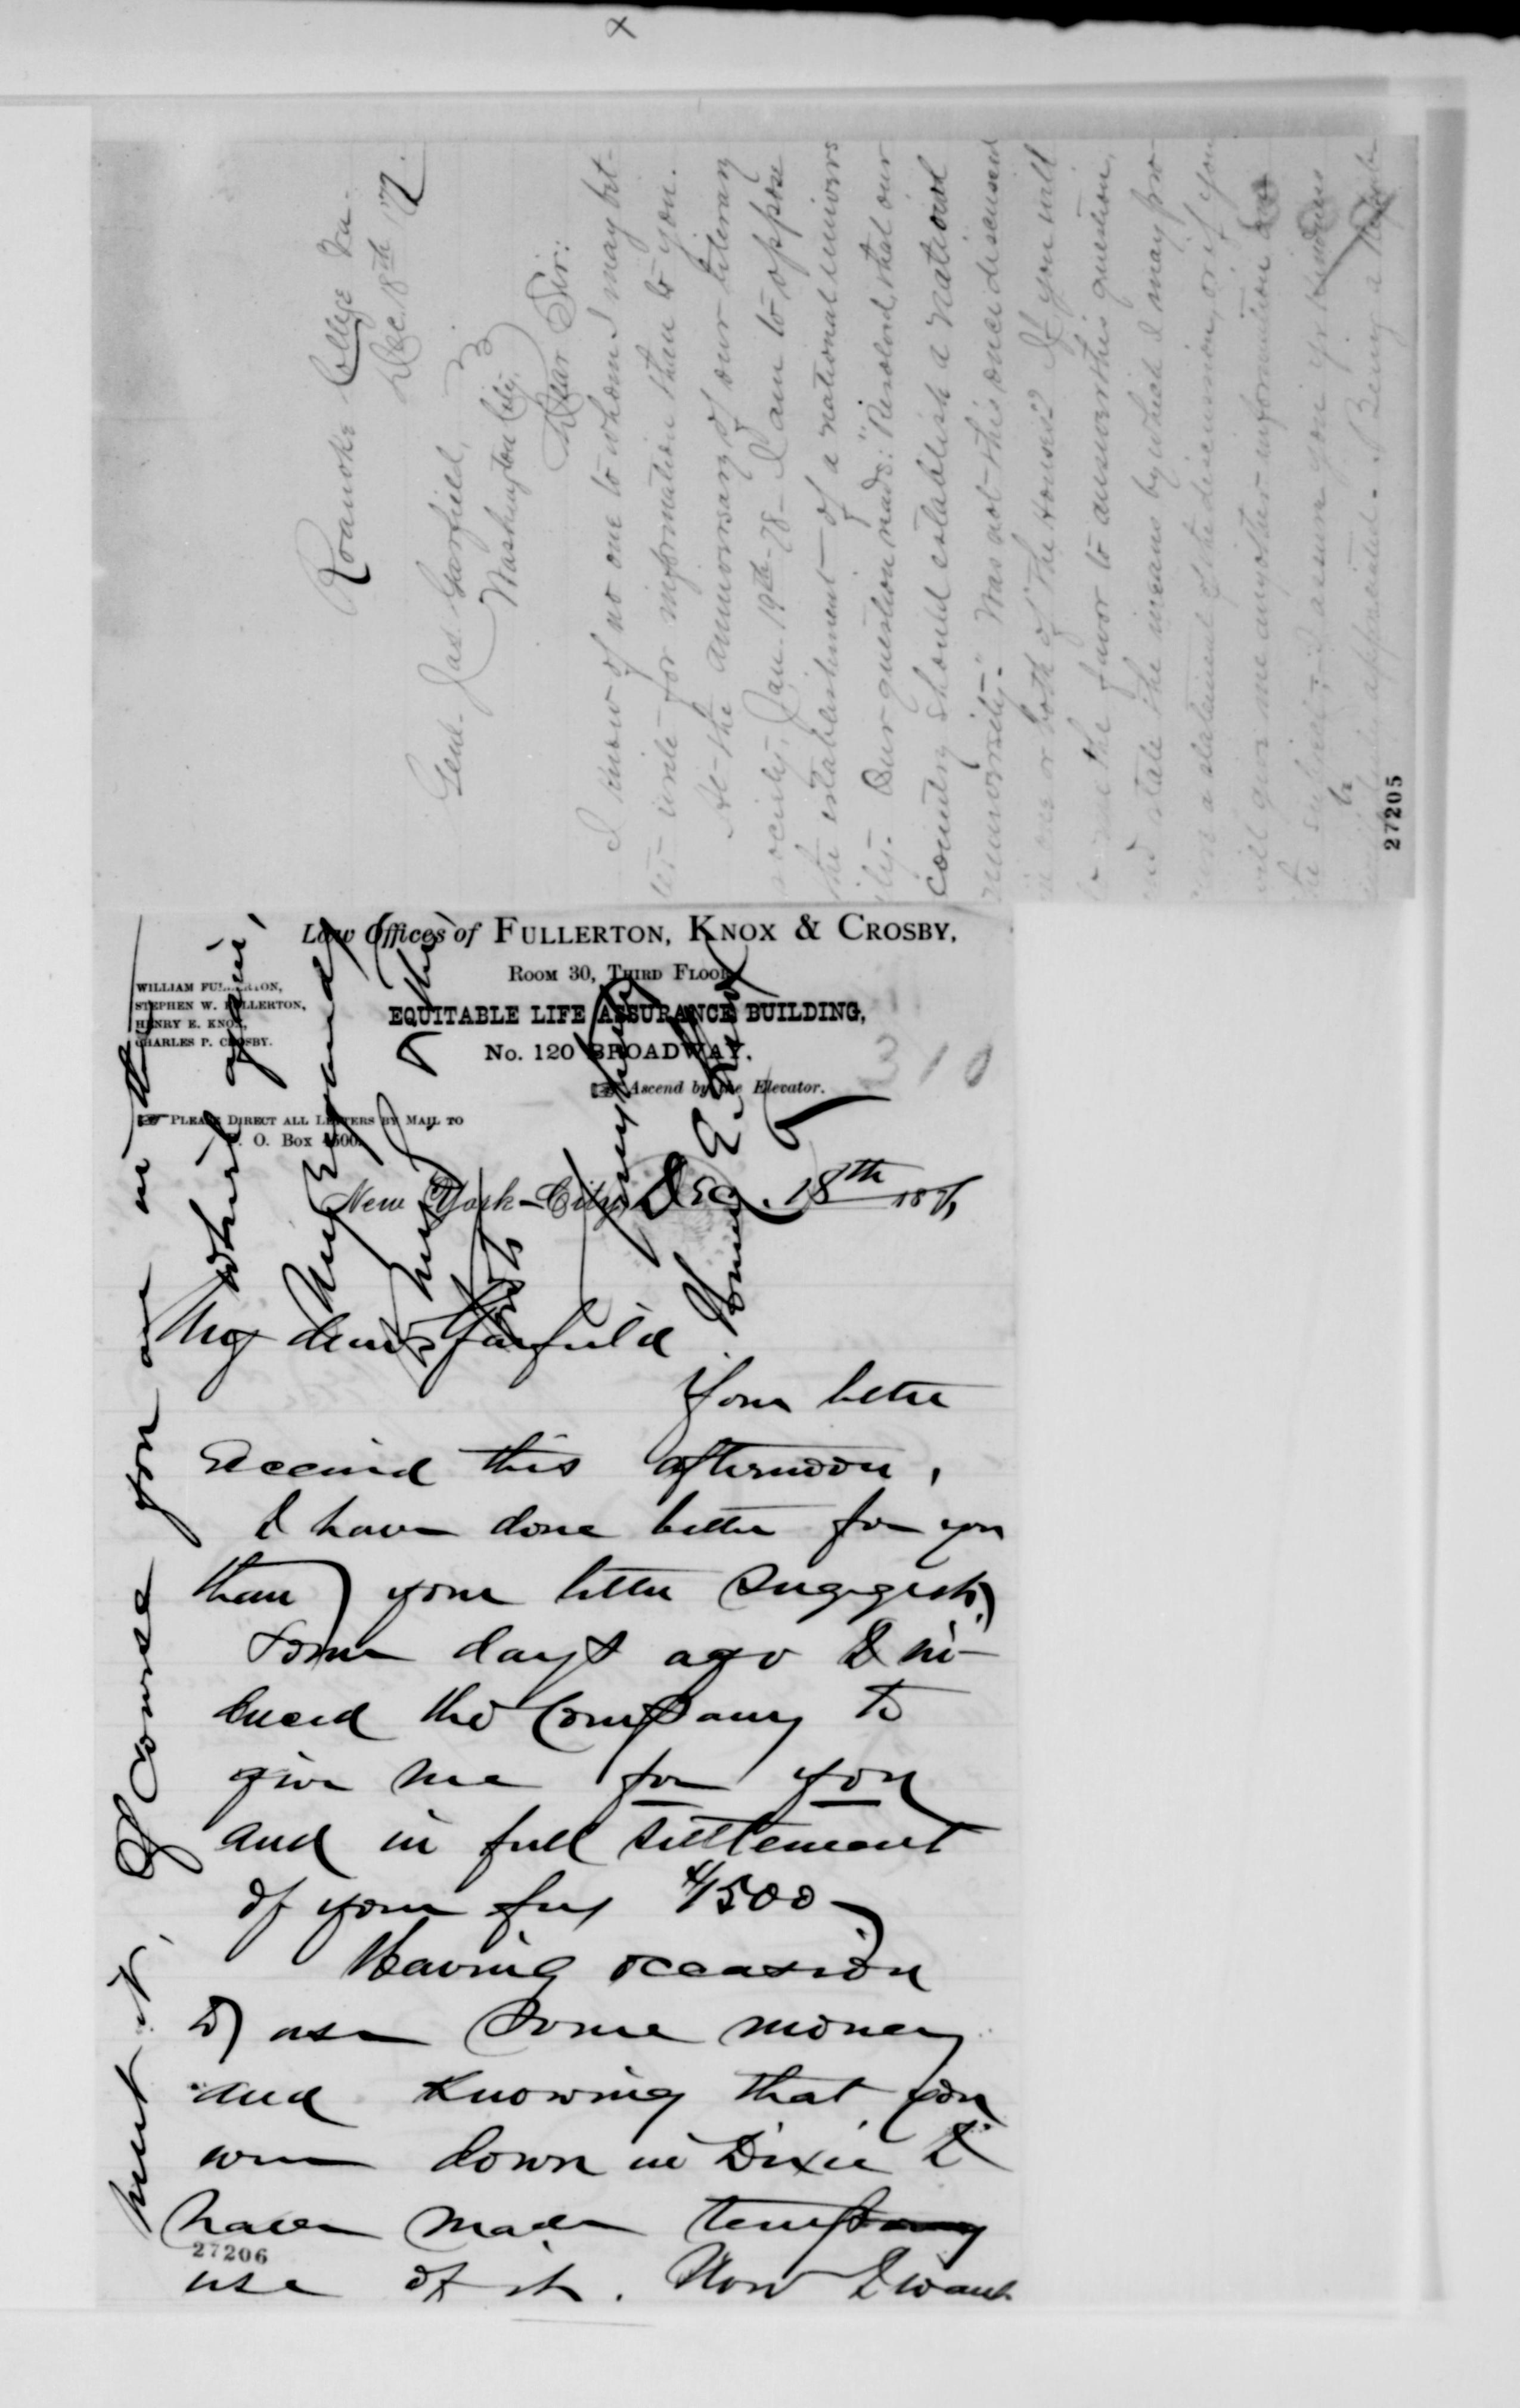 Roanoke College Va.
Dec. 18th '77.
Genl. Jas Garfield,
Washington City,
Dear Sir:
I know of no one to whom I may bet-
ter write for information than to you.
At the anniversary of our literary
society, Jan. 19th -78- I am to oppose
the establishment of a national univers
ity. Our question reads: "Resolved that our
country should establish a national
university." Was not this once discussed
in one or both of the Houses? If you will
do me the favor to answer this question,
and state the means by which I may pro-
cure a statement of the discussion, or if you
will give me any other information
the subject, I assure you yr kindness
be
appreciated. Being a
27205
Law Offices of FULLERTON, KNOX & CROSBY,
ROOM 30, THIRD FLOOR,
WILLIAM FULLERTON,
STEPHEN W. FULLERTON,
HENRY E. KNOX,
CHARLES P. CROSBY.
EQUITABLE LIFE ASSURANCE BUILDING,
No. 120 BROADWAY.
Ascend by the Elevator.
310
PLEASE DIRECT ALL LETTERS BY MAIL TO
P. O. Box 4500.
New York City, Dec. 18th 187
My dear Garfield
Your letter
received this afternoon,
I have done better for you
than your letter suggests,
Some days ago I in-
duced the Company to
give me for you
and in full settlement
of your fees $1500
Having occasion
to use some money
and knowing that you
were down in Dixie I
have made temporary
27206
use of it. Now I want
hurt it. Of course you are in the
right again,
My regards
the
Henry E. Knox